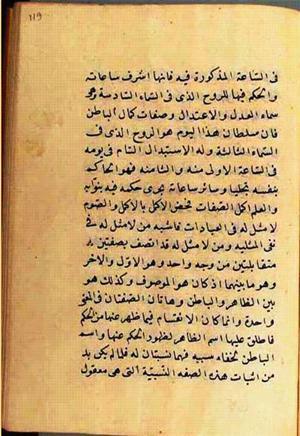 119
فى الساعة المذكورة فيه فانها اشرف ساعاته
والحكم فيها للروح الذى فى السماء السادسة وهو
سماء العدل والاعتدال وصفات كمال الباطن
فان سلطان هذا اليوم هو الروح الذى فى
السماء الثالثة وله الاستبدال التام فى يومه
فى الساعة الاولى منه والثامنة فهو الحاكم
بنفسه تجليا وسائر ساعاته يجرى حكمه فيه بنوابه
والعلم اكل الصفات فخص الاكل بالاكل والصوم
لا مثل له فى العبادات فاشبه من لا مثل له فى
نفى المثلية ومن لا مثل له قد اتصف بصفتين
متقابلتين من وجه واحد وهو الاول والاخر
وهو ما بينهما اذ كان هو الموصوف وكذلك هو
بين الظاهر والباطن وهاتان الصفتان فى المعنى
واحدة وانما كان الانقسام فيما ظهر عنها من الحكم
فاطلق عليها اسم الظاهر لظهور الحكم عنها واسم
الباطن لخفاء سببه فهما نسبتان له فلما لم يكن بد
من اثبات هذه الصفه النسبية التى هى معقول